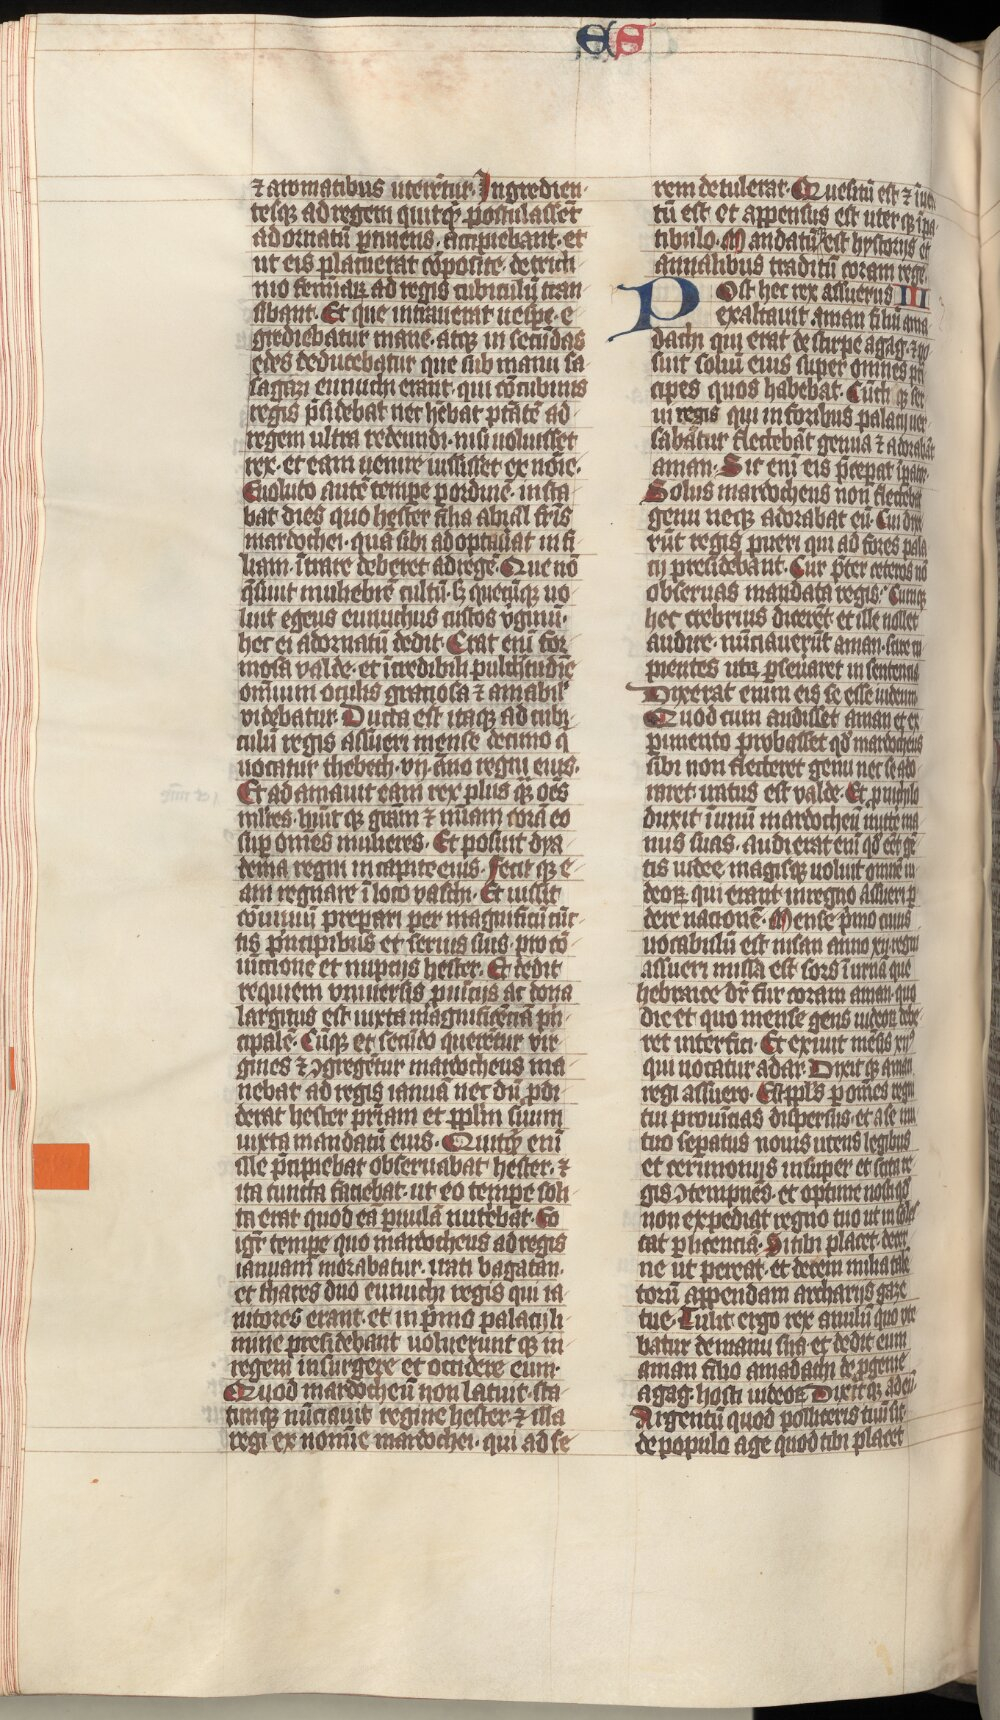 ES
⁊ aromatibus uterētur. Ingredien-
tesq̧ ad regem quitq̄d postulassēt
ad ornatū ꝑtinens. accipiebant. et
ut eis placuerat cōposite. de tricli
nio feminaꝝ ad regis cubiculū tran
sibant. Et que intrauerat uespe. e-
grediebatur mane. atq̧ in secūdas
edes deducebatur que sub manu sa
sagazi eunuchi erant. qui cōcubinis
regis p̄sidebat nec hēbat ptātē ad
regem ultra redeundi. nisi uoluisset
rex. et eam uenire iussisset ex noīe.
Euoluto autē tempe ꝑ ordinē. insta
bat dies quo hester filia abiail fr̄is
mardochei. quā sibi adoptauat in fi
liam. ītrare deberet ad regē. Que nō
q̄siuit muliebrē cultū. sꝫ quecūq̧ uo
luit egeus eunuchus custos v̓ginū.
hec ei ad ornatū dedit. Erat enī for
mosa valde. et īcredibili pulchritudīe
omnium oculis graciosa ⁊ amabil'
videbatur. Ducta est itaq̧ ad cubi
culū regis assueri mense decimo q̄
uocatur thebeth. vij. āno regni eius.
Et adamauit eam rex plus q̄ oēs
ml̄ies. habuitq̧ grām ⁊ mīam corā eo
suꝑ omnes mulieres. Et posuit dya
dema regni in capite eius. fecitq̧ e-
am regnare ī loco vasthi. Et iussit
cōuiuiū prepari per magnificū cūc-
tis p̄ncipibus et seruis suis. pro cō
iūctione et nuptijs hester. Et dedit
requiem vniuersis ꝓuīcijs ac dona
largitus est iuxta magnificēciā pn̄
cipalē. Cūq̧ et secūdo querētur vir-
gines ⁊ ꝯgregētur mardocheus ma
nebat ad regis ianuā nec dū ꝓdi
derat hester pr̄iam et pplm̄ suum
iuxta mandatū eius. Quitq̄d enī
ille p̄cipiebat obseruabat hester. ⁊
ita cuncta faciebat. ut eo tempe soli
ta erat quod eā ꝑuulā nutriebat. Eo
igr̄ tempe quo mardocheus ad regis
ianuam morabatur. irati bagatan.
et thares duo eunuchi regis qui ia
nitores erant. et in p̄mo palacij li
mine presidebant uoluerunt q̧ in
regem insurgere et occidere eum.
Quod mardocheū non latuit. sta-
timq̧ nūciauit regine hester. ⁊ illa
regi ex nomīe mardochei. qui ad se
rem detulerat. Quesitū est ⁊ īuen
tū est et appensus est uterq̧ ī pa
tibulo. Mandatūq̧ est hystorijs et
annalibus traditū coram rege.
Post hec rex assuerus III
exaltauit aman filiū ama
dachi qui erat de stirpe agag. ⁊ po
suit soliū eius super omnes prī
cipes quos habebat. Cūctiq̧ ser
ui regis qui in foribus palacij uer
sabātur flectebāt genua ⁊ adorabāt
aman. Sic enī eis p̄cepat īpator.
Solus mardocheus non flectebat
genu neq̧ adorabat eū. Cui dixe
rūt regis pueri qui ad fores pala
cij presidebant. Cur p̄ter ceteros nō
obseruas mandata regis. Cumq̧
hec crebrius dicerēt. et ille nollet
audire. nūciauerūt aman. scire cu
pientes utꝝ ꝑseuaret in sentencia
Dixerat enim eis se esse iudeum
Quod cum audisset aman et ex
ꝑimento probasset qd̄ mardocheus
sibi non flecteret genu nec se ado
raret. iratus est valde. Et ꝓ nichilo
duxit ī unū mardocheū mitte ma
nus suas. audierat enī qd̄ eēt gē
tis iudee magisq̧ voluit omnē iu
deoꝝ. qui erant in regno assueri ꝑ
dere nacionē. Mense p̄mo cuius
uocabulū est nisan anno xij. regni
assueri missa est sors ī urnā que
hebraice dr̄ fur coram aman. quo
die et quo mense gens iudeoꝝ debe-
ret interfici. Et exiuit mēsis xij⁹
qui uocatur adar. Dixitq̧ aman
regi assuero. Est ppl̄s ꝑ omēs regni
tui prouīcias dispersus. et a se inui
tuo sepatus nouis utens legibus
et cerimonijs insuper et scita re-
gis ꝯtempnēs. et optime nosti qd̄
non expediat regno tuo ut insoles
cat ꝑ licenciā. Si tibi placet. decer
ne ut pereat. et decem milia tale
torū appendam archarijs gaze
tue. Tulit ergo rex anulū quo ute
batur de manu sua. et dedit eum
aman filio amadachi de ꝓgenie
agag. hosti iudeoꝝ Dixitq̧ ad eū.
Argentū quod polliceris tuū sit.
de populo age quod tibi placet